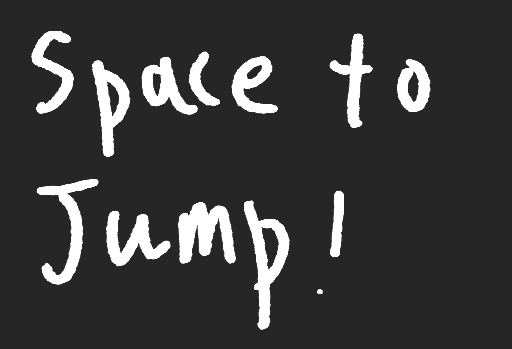 Space to
Jump!